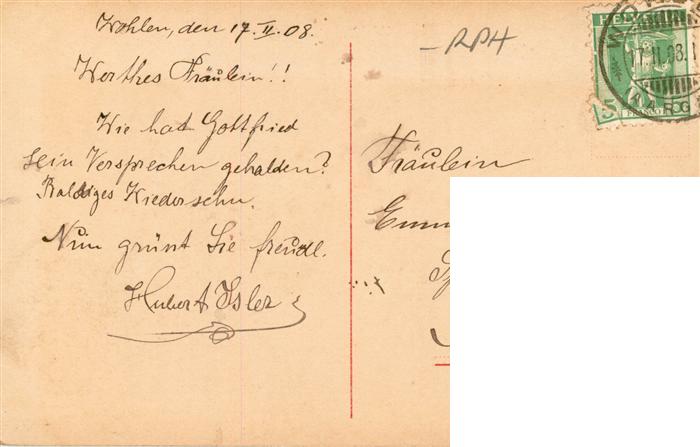 Wohlen, den 17. II. 08.
Werthes Fräulein!!
Wie hat Gottfried
sein Versprechen gehalden?
Baldiges Wiedersehn.
Nun grünst Sie freudl.
Hubert Isler
-RPH
Fräulein
5